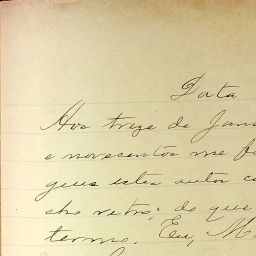 Data
Aos treze de Jan
e novecentos me f
gues estes autos co
cho retro; de que
termo. Eu, M